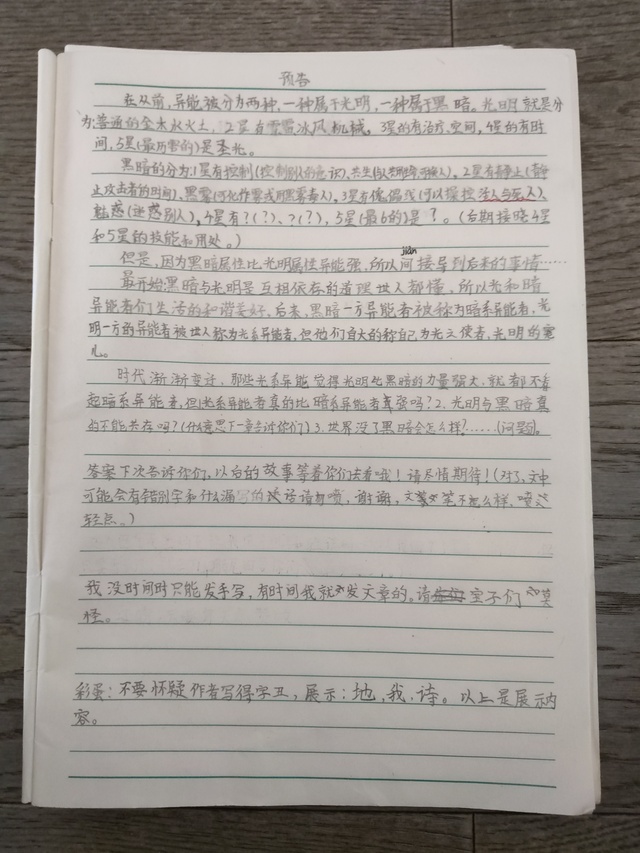 预告
在从前,异能被分为两种,一种属于光明,一种属于黑暗。光明就是分
为:普通的金木水火土,2星有雷雪冰风机械,3星的有治疗,空间,4星的有时
间,5星(最历害的)是圣光。
黑暗的分为:1星有控制(控制别人的意识),共生,2星有静止(静
止攻击者的时间),黑雾(可化作雾或用黑雾毒人),3星有傀儡戏(可以操控活人与死人)、
魅惑(迷惑别人),4星有?(?)、?(?),5星(最6的)是?。(后期接晓4星
和5星的技能和用处。)
但是,因为黑暗属性比光明属性异能强,所以间jiàn接导列后来的事情……
最开始黑暗与光明是互相依存的道理世人都懂,所以光和暗
异能者们生活的和谐美好,后来,黑暗一方异能者被称为暗系异能者,光
明一方的异能者被世人称为光系异能者,但他们自大的称自己为光之使者,光明的宠
儿。
时代渐渐变迁,那些光系异能觉得光明比黑暗的力量强大,就都不看
起暗系异能者,但1.光系异能者真的比暗系异能者真强吗?2.光明与黑暗真
的不能共存吗?(什么意思下一章告诉你们)3.世界没了黑暗会怎么样?……(问题)。
答案下次告诉你们,以后的故事等着你们去看哦!请尽情期待!(对了,文中
可能会有错别字和什么漏写的话请勿喷,谢谢,文笔不怎么样,喷
轻点。)
我没时间时只能发手写,有时间我就发文章的。请宝子们莫
怪。
彩蛋:不要怀疑作者写得字丑,展示:地,我,诗。以上是展示内
容。